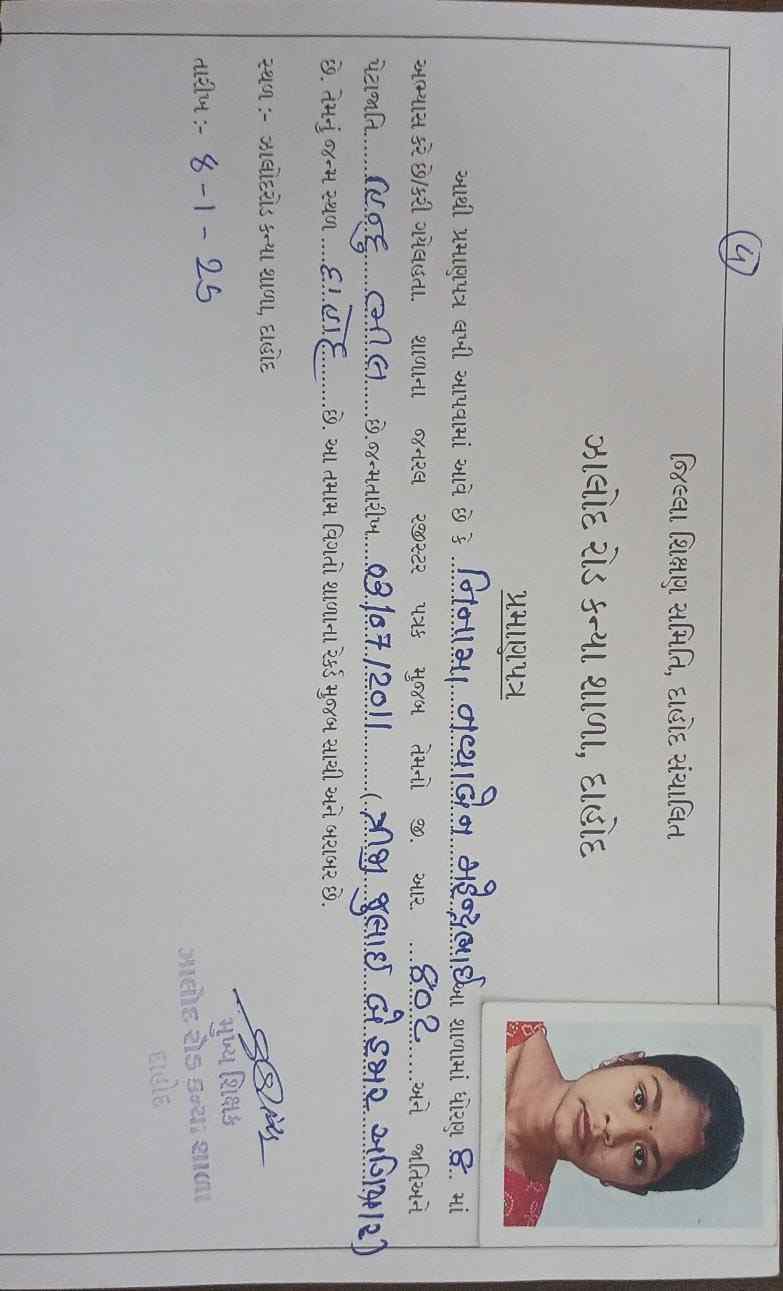 (૫)
જિલ્લા શિક્ષણ સમિતિ, દાહોદ સંચાલિત
ઝાલોદ રોડ કન્યા શાળા, દાહોદ
પ્રમાણપત્ર
આથી પ્રમાણપત્ર લખી આપવામાં આવે છે કે ..નિનામા નવ્યાબેન મહેન્દ્રભાઈના શાળામાં ધોરણ ૪.. માં
અભ્યાસ કરે છે/કરી ગયેલહતા શાળાના જનરલ રજીસ્ટર પત્રક મુજબ તેમનો જી. આર. ....૪૦૨.......અને જાતિઅને
પેટાજાતિ.....હિન્દુ ભીલ.....છે.જન્મતારીખ...03/07/2011........(ત્રીજી જુલાઈ બે હજાર અગિયાર)
છે. તેમનું જન્મ સ્થળ ...દાહોદ.......છે. આ તમામ વિગતો શાળાના રેકર્ડ મુજબ સાચી અને બરાબર છે.
સ્થળ :- ઝાલોદરોડ કન્યા શાળા, દાહોદ
તારીખ :- 8 - 1 - 25
મુખ્ય શિક્ષક
ઝાલોદ રોડ કન્યા શાળા
દાહોદ